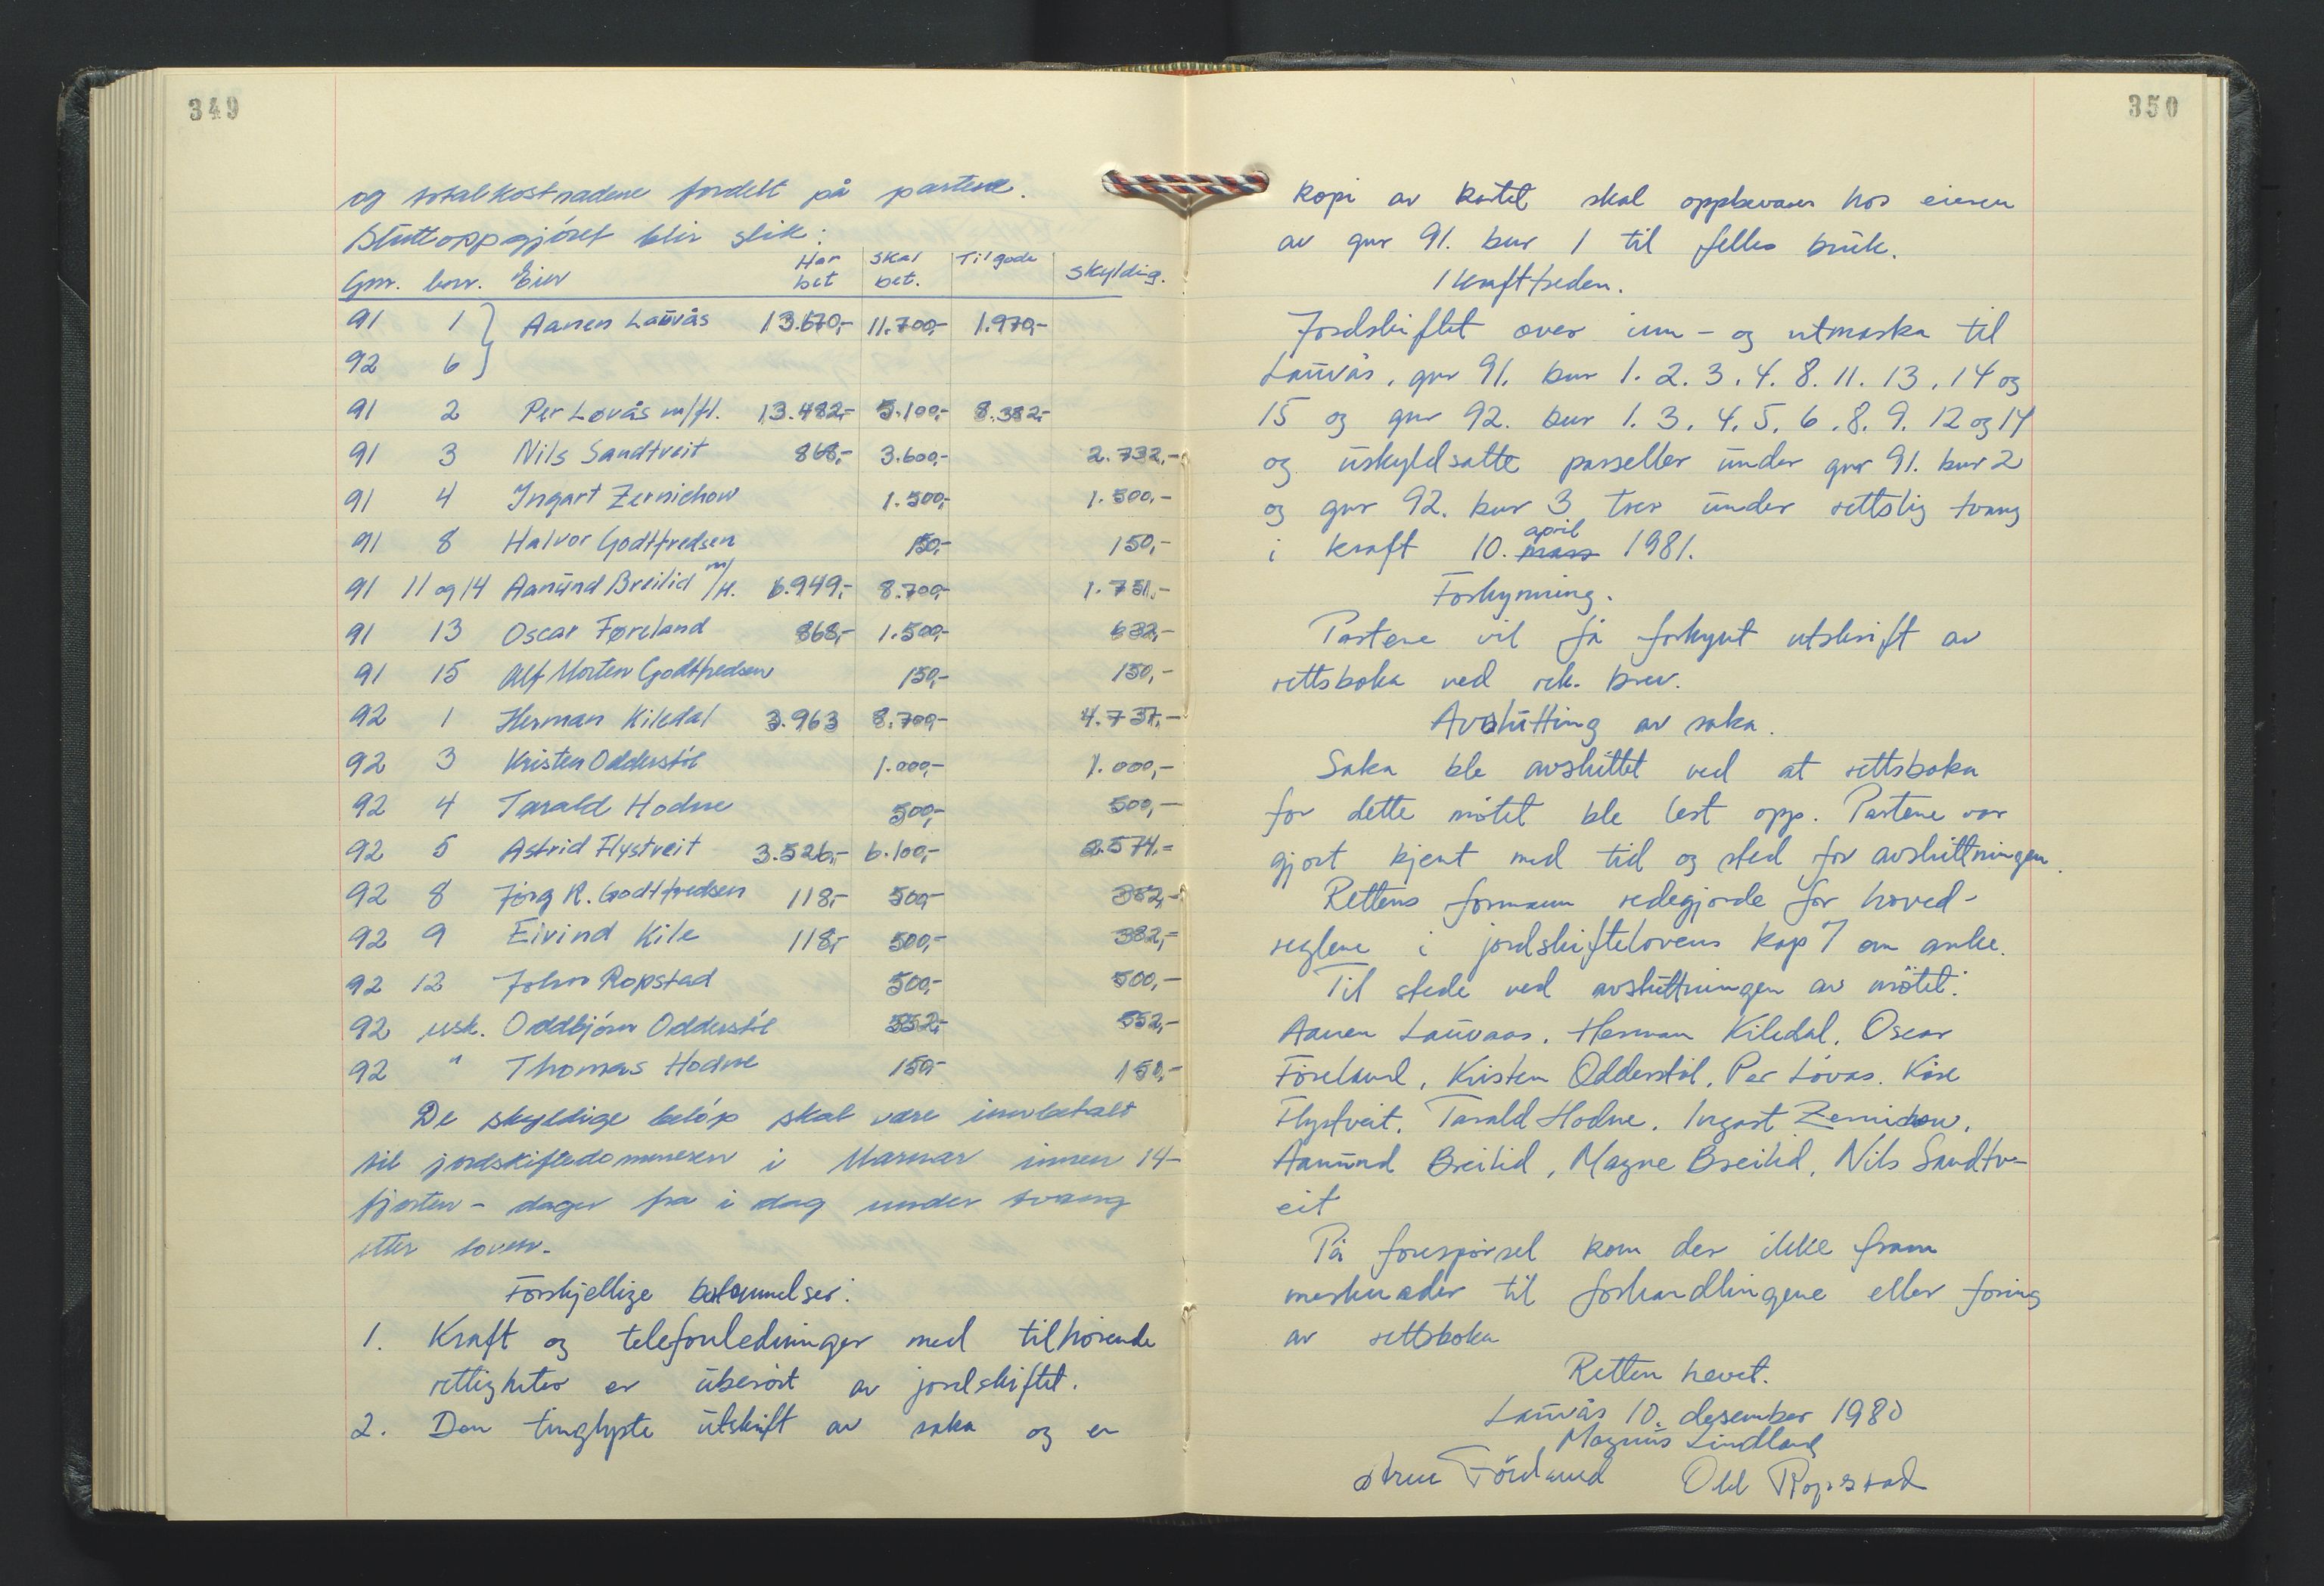 349
og totalkostnadene fordelt på partene.
Sluttoppgjöret blir slik:
Gnr. bnr. Eier Har bet Skal bet. Tilgode Skyldig.
91 1 } Aanen Lauvås 13.670,- 11.700,- 1.970,-
92 6 }
91 2 Per Løvås m/fl. 13.482,- 5.100,- 8.382,-
91 3 Nils Sandtveit 868,- 3.600,- 2.732,-
91 4 Ingart Zernichow 1.500,- 1.500,-
91 8 Halvor Godtfredsen 150,- 150,-
91 11 og 14 Aanund Breilid m/fl. 6.949,- 8.700,- 1.751,-
91 13 Oscar Føreland 868,- 1.500,- 632,-
91 15 Alf Morten Godtfredsen 150,- 150,-
92 1 Herman Kiledal 3.963 8.700,- 4.737,-
92 3 Kristen Odderstöl 1.000,- 1.000,-
92 4 Tarald Hodne 500,- 500,-
92 5 Astrid Flystveit 3.526,- 6.100,- 2.574,-
92 8 Jörg R. Godtfredsen 118,- 500,- 382,-
92 9 Eivind Kile 118,- 500,- 382,-
92 12 John Ropstad 500,- 500,-
92 usk. Oddbjörn Odderstöl 552,- 552,-
92 " Thomas Hodne 150,- 150,-
De skyldige belöp skal være innbetalt
til jordskiftedommeren i Marnar innen 14-
fjorten - dager fra i dag under tvang
etter loven.
Forskjellige bestemmelser:
1. Kraft og telefonledninger med tilhörende
rettigheter er uberört av jordskiftet.
2. Den tinglyste utskrift av saka og en
350
kopi av kartet skal oppbevares hos eieren
av gnr 91. bnr 1 til felles bruk.
Ikrafttreden.
Jordskiftet over inn- og utmarka til
Lauvås, gnr 91. bnr 1. 2. 3. 4. 8. 11. 13. 14 og
15 og gnr 92. bnr 1. 3. 4. 5. 6. 8. 9. 12 og 14
og uskyldsatte parseller under gnr 91. bnr 2
og gnr 92. bnr 3 trer under rettslig tvang
april
i kraft 10. mars 1981.
Forkynning.
Partene vil få forkynt utskrift av
rettsboka ved rek. brev.
Avslutting av saka.
Saka ble avsluttet ved at rettsboka
for dette mötet ble lest opp. Partene var
gjort kjent med tid og sted for avsluttningen.
Rettens formann redegjorde for hoved-
reglene i jordskiftelovens kap 7 om anke.
Til stede ved avsluttningen av mötet:
Aanen Lauvaas, Herman Kiledal, Oscar
Föreland, Kristen Odderstöl, Per Lövås. Kåre
Flystveit. Tarald Hodne. Ingart Zernichow.
Aanund Breilid, Magne Breilid, Nils Sandtv-
eit
På forespörsel kom der ikke fram
merknader til forhandlingene eller föring
av rettsboka
Retten hevet.
Lauvås 10. desember 1980
Magnus Lindland
Föreland Odd Ropstad